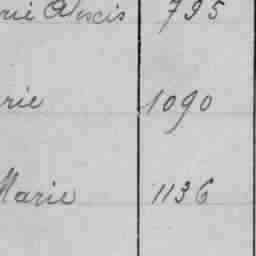 rie Alexis 795
rie 1090
Marie 1136